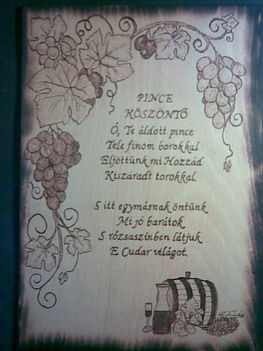 PINCE
KÖSZÖNTŐ
Ó, Te áldott pince
Tele finom borokkal
Eljöttünk mi Hozzád
Kiszáradt torokkal.
S itt egymásnak öntünk
Mi jó barátok
S rózsaszínben látjuk
E Cudar világot.